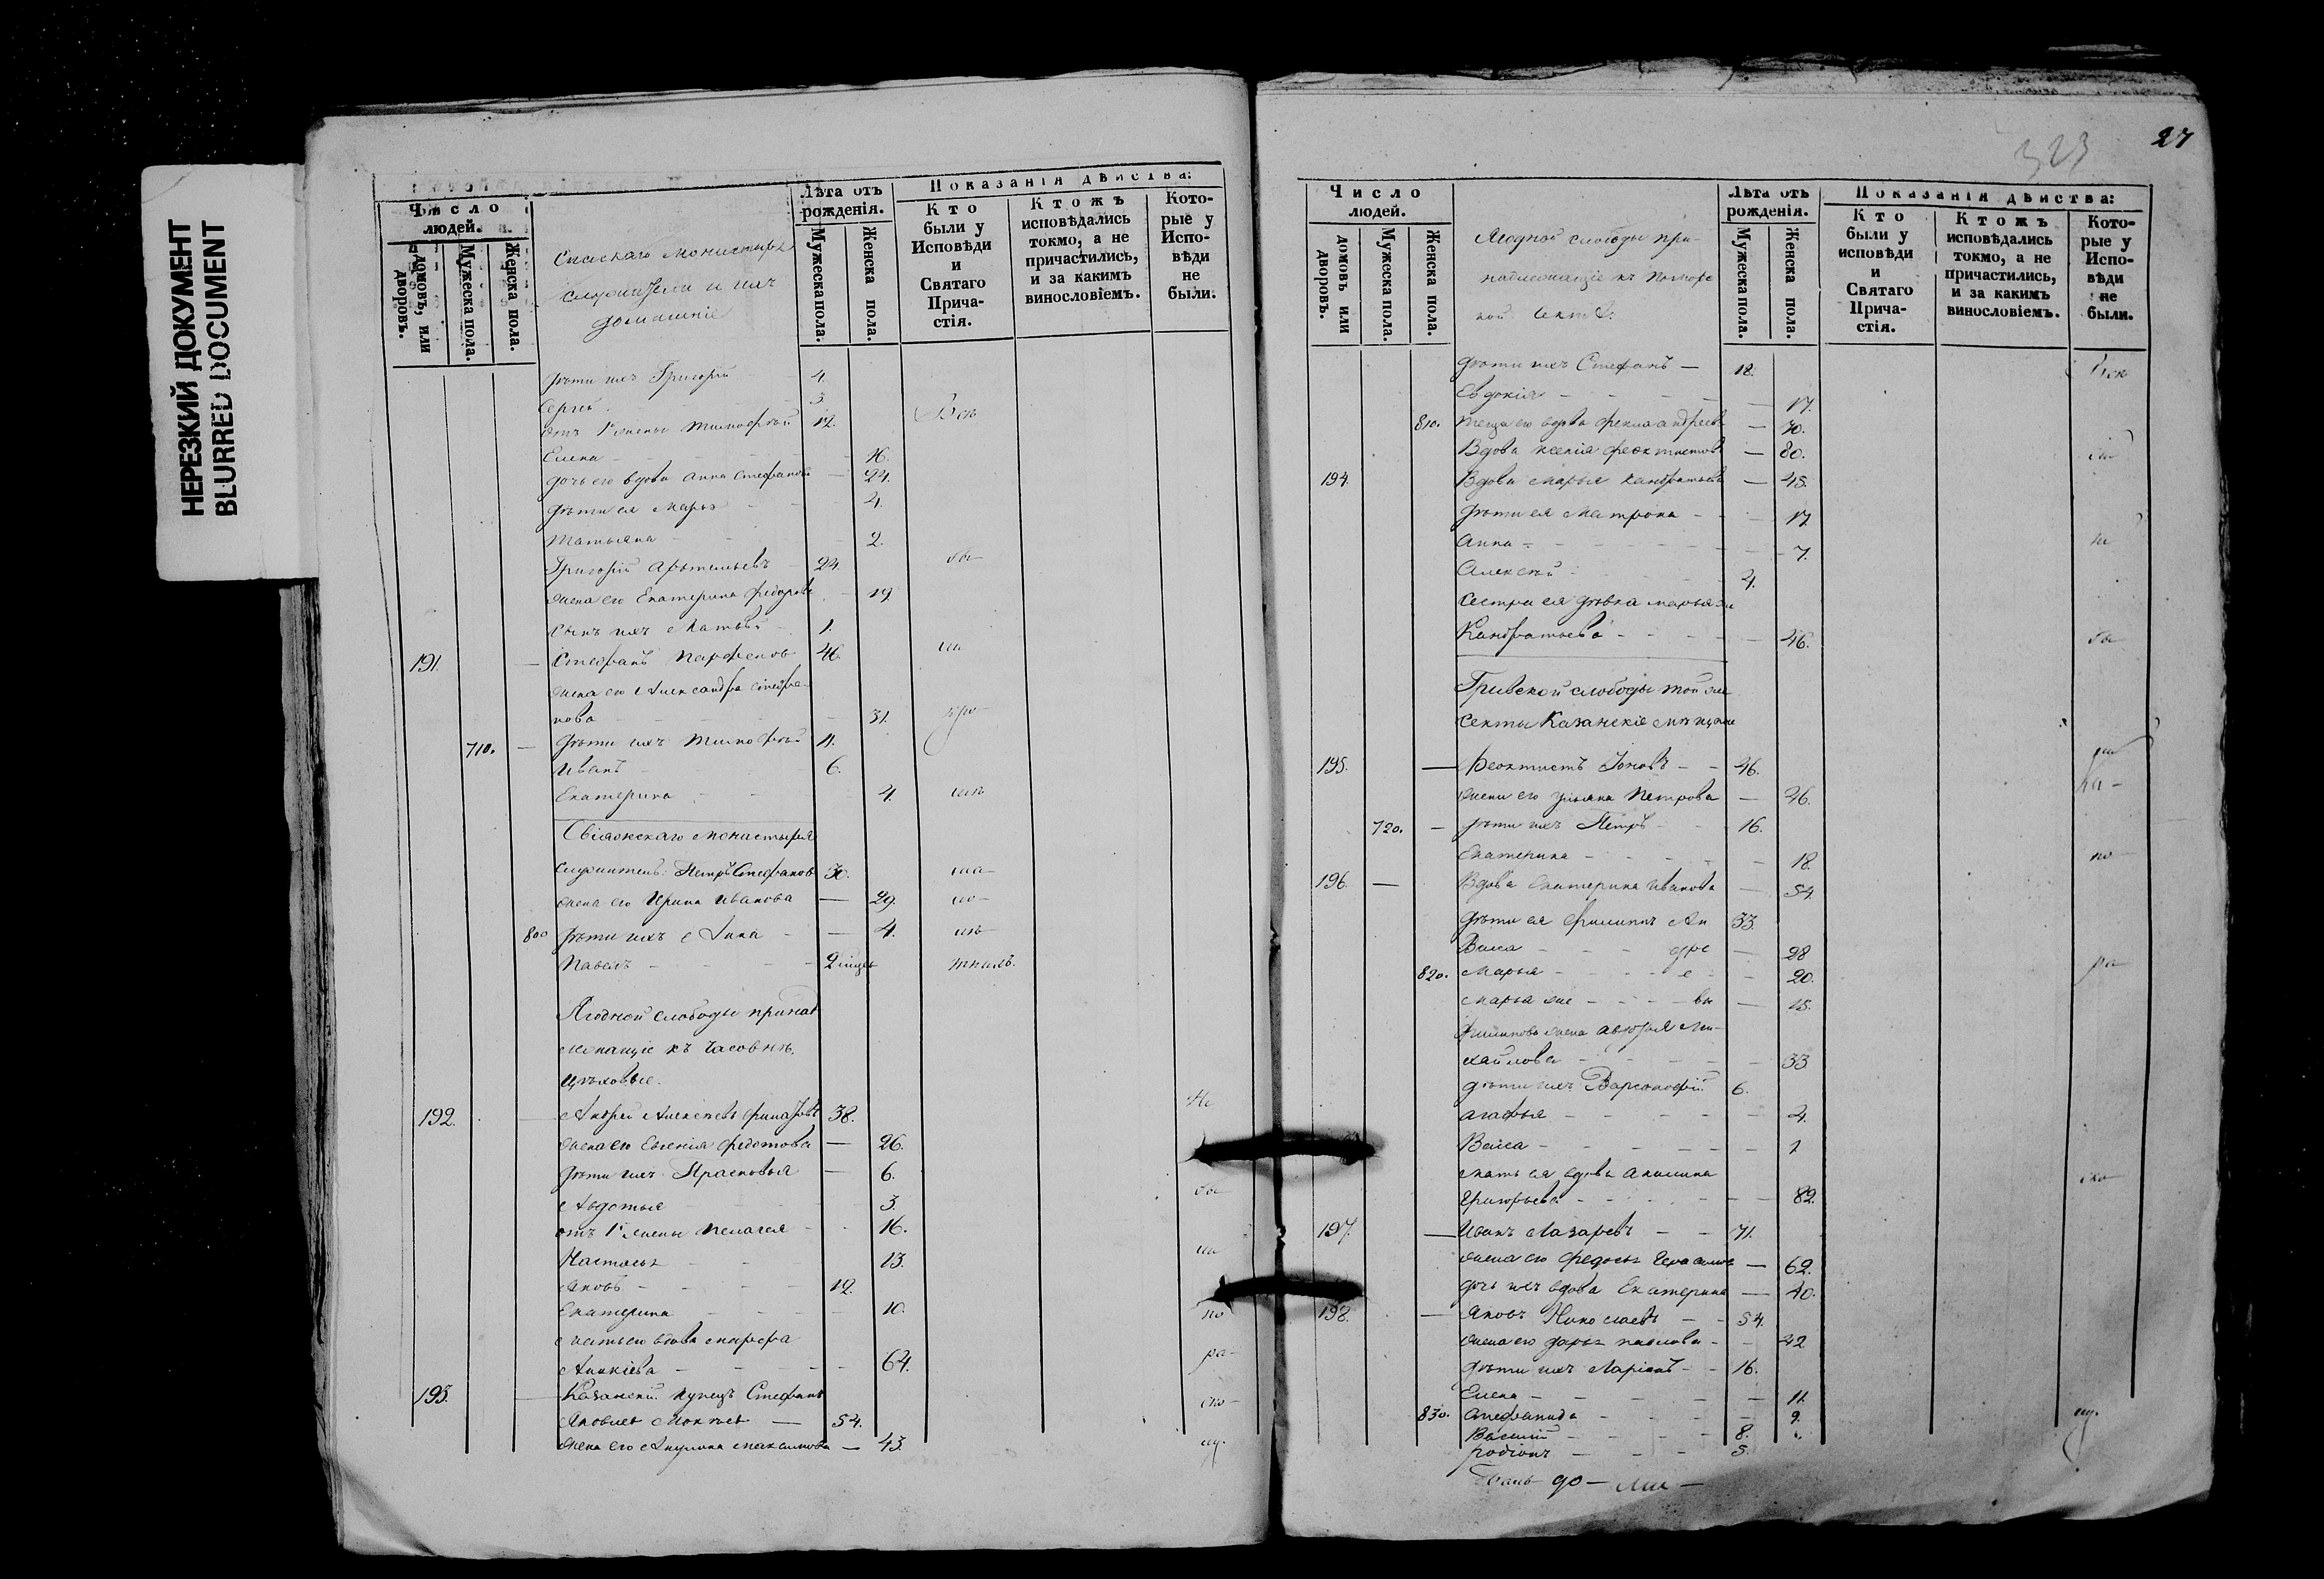 НЕРЕЗКИЙ ДОКУМЕНТ
BLURRED DOCUMENT
Число людей.
домовъ, или дворовъ.
Мужеска пола.
Женска пола.
Спаскаго Монастыря
служители и ихъ
домашніе
Лѣта отъ рожденія.
Мужеска пола.
Женска пола.
Показанія дѣйства:
Кто были у Исповѣди и Святаго Причастія.
Ктожъ исповѣдались токмо, а не причастились, и за какимъ винословіемъ.
Которые у Исповѣди не были.
дѣти ихъ Григорій 4.
Сергей 3.
отъ 1й жены Тимофей 12.
Елена 16.
дочь его вдова Анна Стефанова 24.
дѣти ея Марья 4.
Татьяна 2.
Григорій Артемьевъ 24.
жена его Екатерина Федорова 19.
сынъ ихъ Матвей 1.
191. Стефанъ Парфенов 46.
жена его Александра Стефа-
нова 31.
710. дѣти ихъ Тимофей 11.
Иванъ 6.
Екатерина 4.
Свіяжскаго Монастыря
служитель: Петръ Стефанов 30.
жена его Ирина Иванова 29.
800 дѣти ихъ Анна 4.
Павелъ
Ягодной слободы принад
лежащіе къ Часовнѣ.
Цѣховые.
192. Андрей Алексѣевъ 38.
жена его Евгенія Федотова 26.
дѣти ихъ Прасковья 6.
Авдотья 3.
отъ 1й жены Пелагея 16.
Настасья 13.
Яковъ 12.
Екатерина 10.
мать его вдова Марфа
Аникіева 64.
193. Казанскій купецъ Стефанъ
Яковлев Мокѣев 54.
жена его Акулина Максимова 43.
27
323
Число людей.
домовъ или дворовъ.
Мужеска пола.
Женска пола.
Ягодной слободы при-
надлежащіе къ Поморс
кой Сектѣ.
Лѣта отъ рожденія.
Мужеска пола.
Женска пола.
Показанія дѣйства:
Кто были у исповѣди и Святаго Причастія.
Ктожъ исповѣдались токмо, а не причастились, и за какимъ винословіемъ.
Которые у Исповѣди не были.
дѣти ихъ Стефанъ 18.
Евдокія 17.
810. теща его вдова Фекла Андреева 70.
Вдова Ксенія Феоктистова 80.
194. Вдова Марья Кандратьева 45.
дѣти ея Матрона 17
Анна 7.
Алексей 4.
сестра ея дѣвка Марья же
Кандратьева 46.
Гривской слободы той же
секты Казанскіе мѣщане
195. Феоктистъ Іоновъ 46.
жена его Ульяна Петрова 46.
720. дѣти ихъ Петръ 16.
Екатерина 18.
196. Вдова Екатерина Иванова 54.
дѣти ея Филиппъ Ан 33.
Васса дре 28
820. Марья е 20.
Марья же вы 15.
Филипова жена Авдотья Ми-
хайлова 33
дѣти ихъ Варсонофій 6.
Агафья 4.
Васса 1
мать ея вдова Акилина
Григорьева 82.
197. Иванъ Лазаревъ 71.
жена его Федосья Герасимова 62.
дочь ихъ вдова Екатерина 40.
198. Яковъ Николаевъ 54.
жена его Дарья Павлова 42
дѣти ихъ Ларіонъ 16.
Елена 11.
830. Стефанида 9.
Василій 8.
Родіонъ 5.